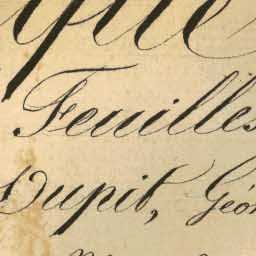 que
Feuilles
Dupit, Géo